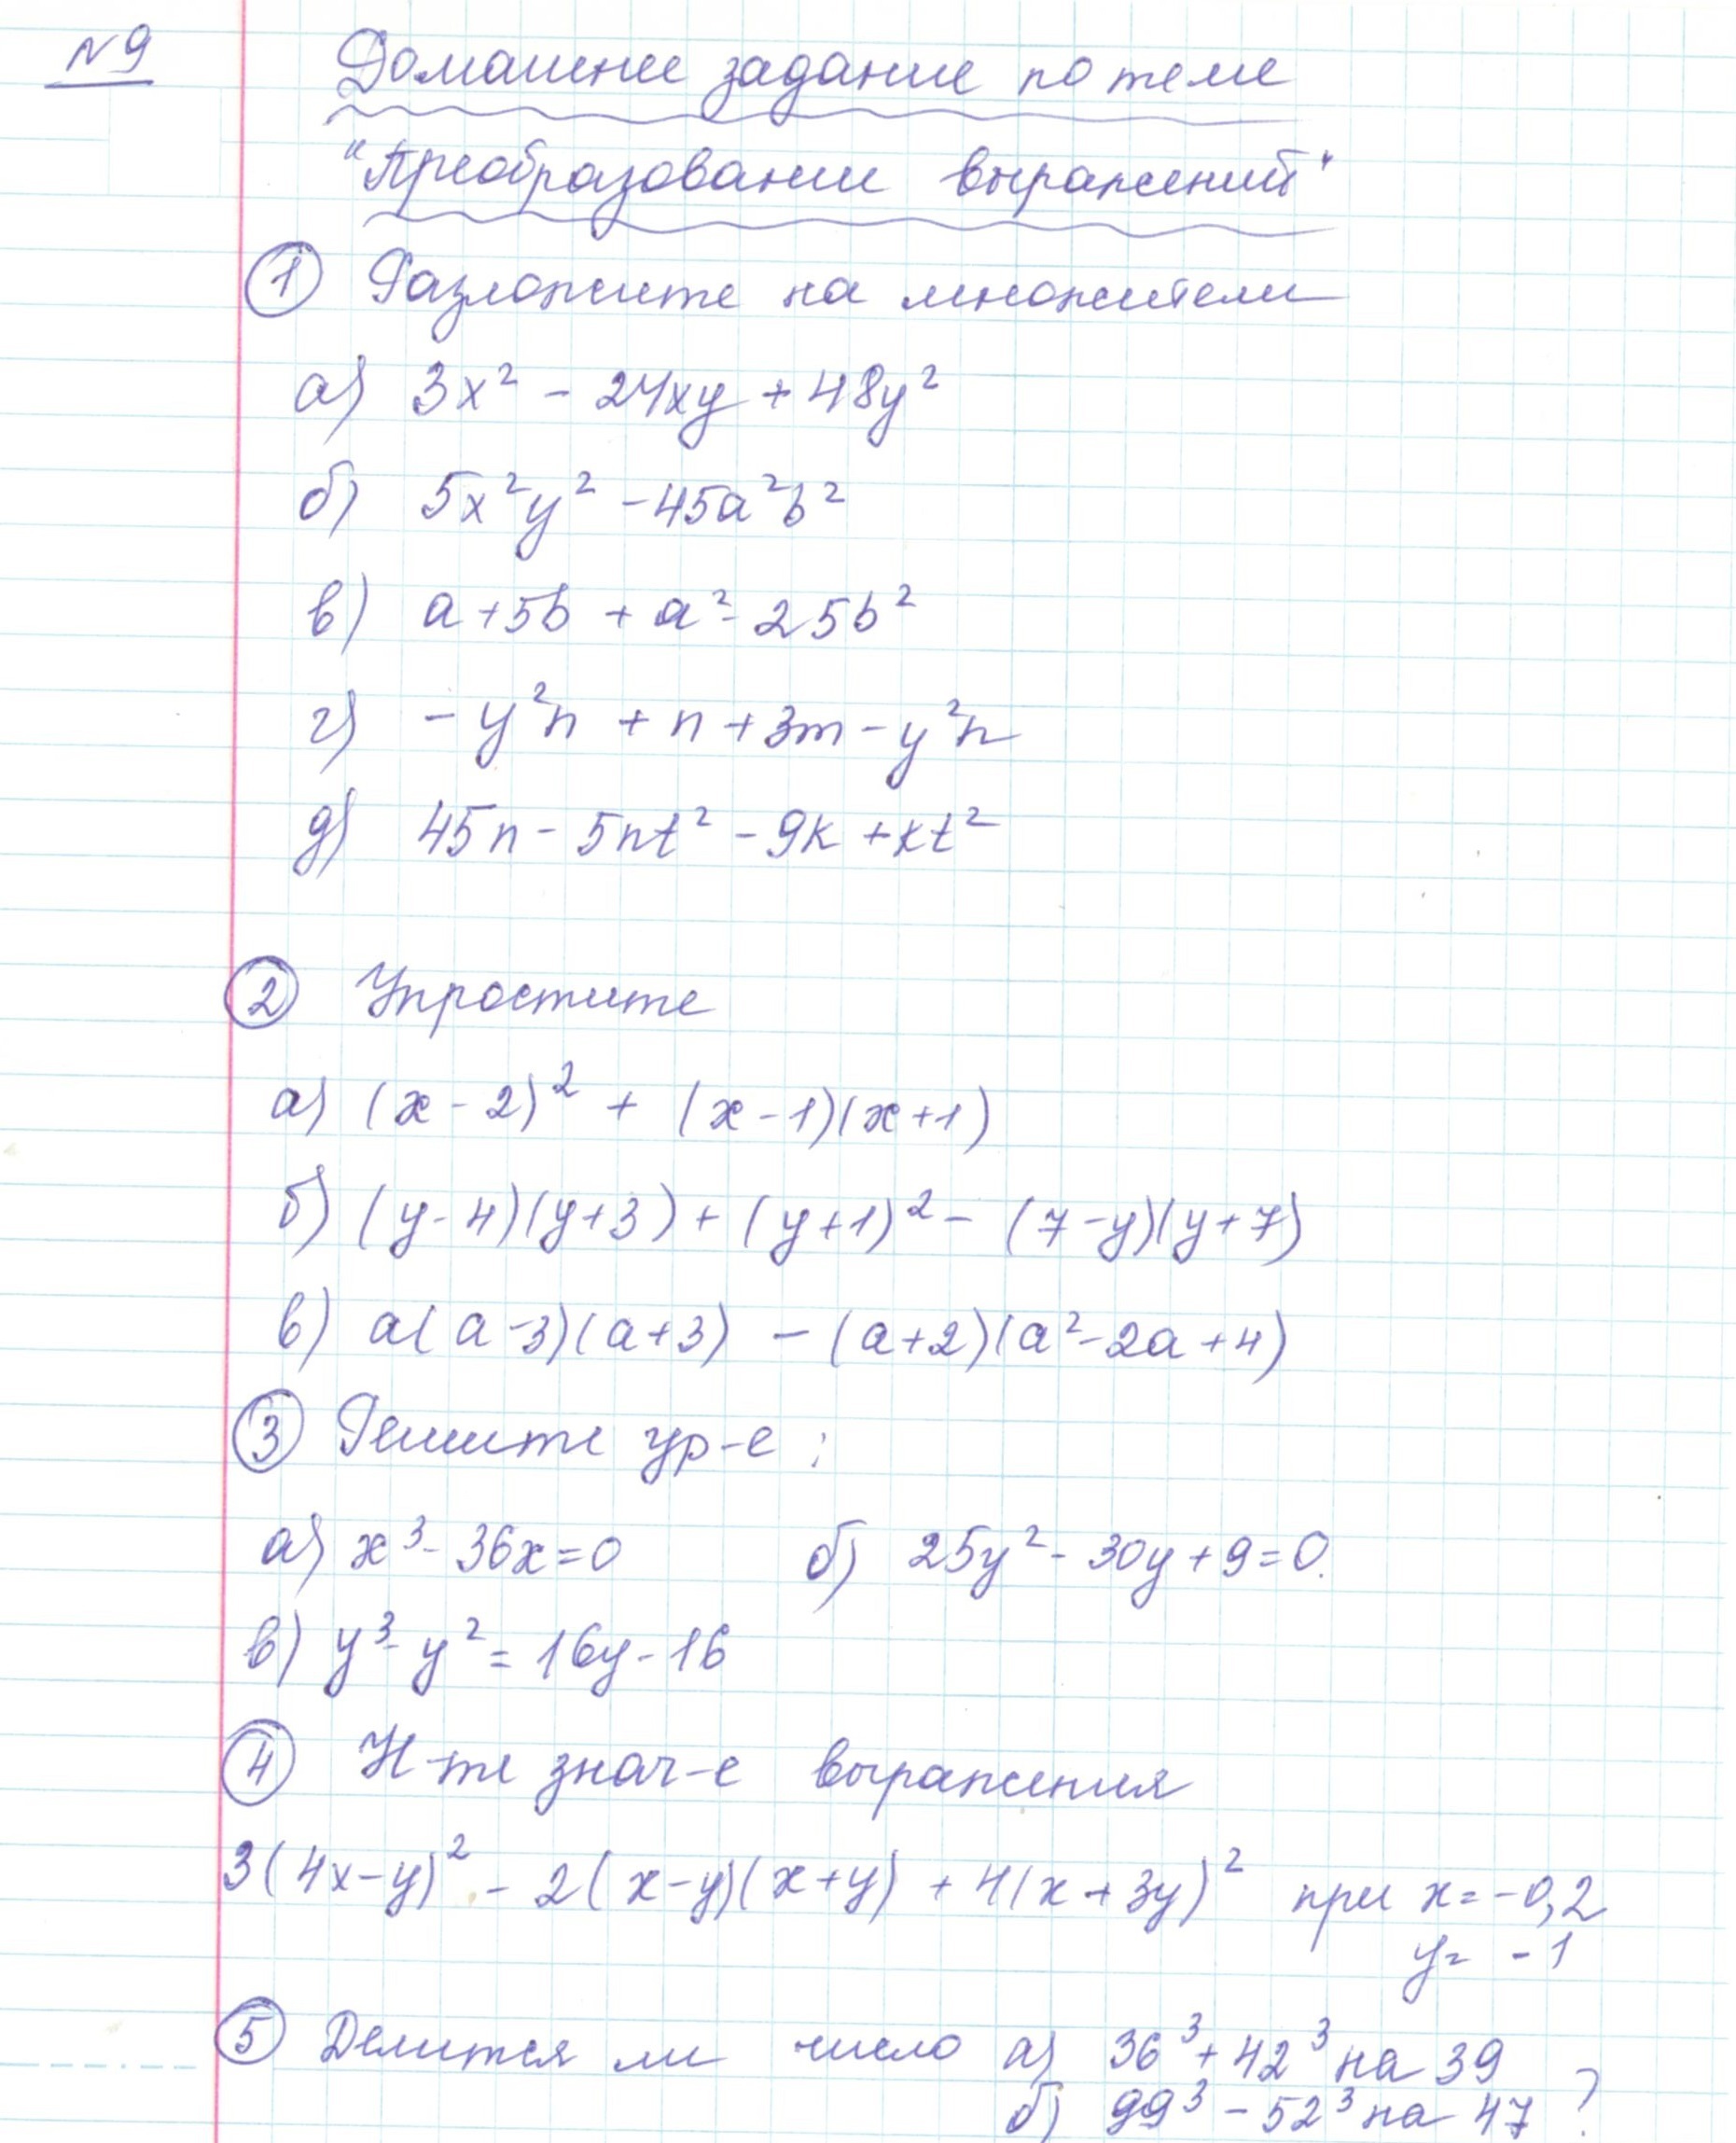 №9
Домашнее задание по теме
"Преобразование выражений"
1 Разложите на множители
а) 3x² - 24xy + 48y²
б) 5x²y² - 45a²b²
в) a + 5b + a² - 25b²
г) - y²n + n + 3m - y²n
д) 45n - 5nt² - 9k + kt²
2 Упростите
а) (x - 2)² + (x - 1)(x + 1)
б) (y - 4)(y + 3) + (y + 1)² - (7 - y)(y + 7)
в) a(a - 3)(a + 3) - (a + 2)(a² - 2a + 4)
3 Решите ур-е:
а) x³ - 36x = 0 б) 25y² - 30y + 9 = 0.
в) y³ - y² = 16y - 16
4 Н-те знач-е выражения
3(4x - y)² - 2(x - y)(x + y) + 4(x + 3y)² при x = -0,2
y = -1
5 Делится ли число а) 36³ + 42³ на 39
б) 99³ - 52³ на 47 ?